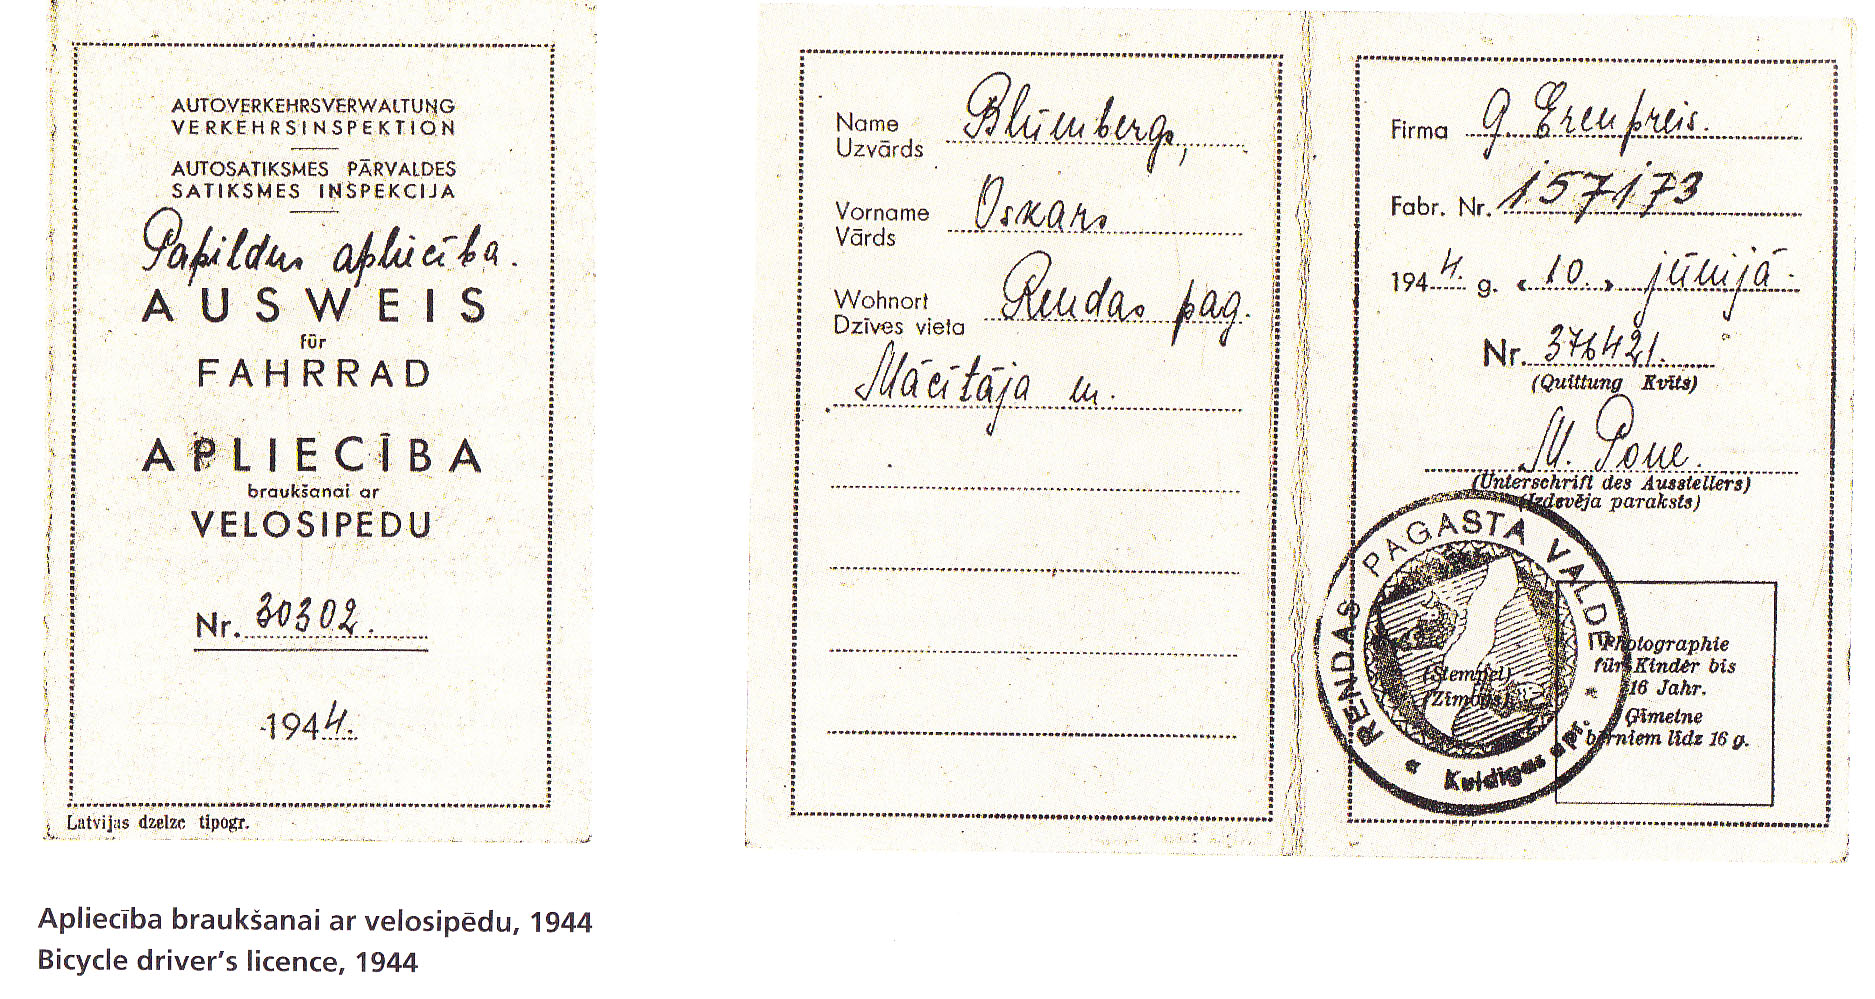 AUTOVERKEHRSVERWALTUNG
VERKEHRSINSPEKTION
AUTOSATIKSMES PĀRVALDES
SATIKSMES INSPEKCIJA
Papildus apliecība.
AUSWEIS
für
FAHRRAD
APLIECĪBA
braukšanai ar
VELOSIPEDU
Nr. 30302.
1944.
Latvijas dzelzc tipogr.
Name Blūmbergs,
Uzvārds
Vorname Oskars
Vārds
Wohnort Rendas pag.
Dzīves vieta
Mācītāja m.
Firma G. Erenpreis.
Fabr. Nr. 157173
1944. g. «10.» jūnijā.
Nr. 376421.
(Quittung Kvīts)
M. Pone.
(Unterschrift des Ausstellers)
(Izdevēja paraksts)
RENDAS PAGASTA VALDE
* Kuldīgas apr. *
(Stempel)
(Zīmogs)
Photographie
für Kinder bis
16 Jahr.
Ģīmetne
bērniem līdz 16 g.
Apliecība braukšanai ar velosipēdu, 1944
Bicycle driver's licence, 1944